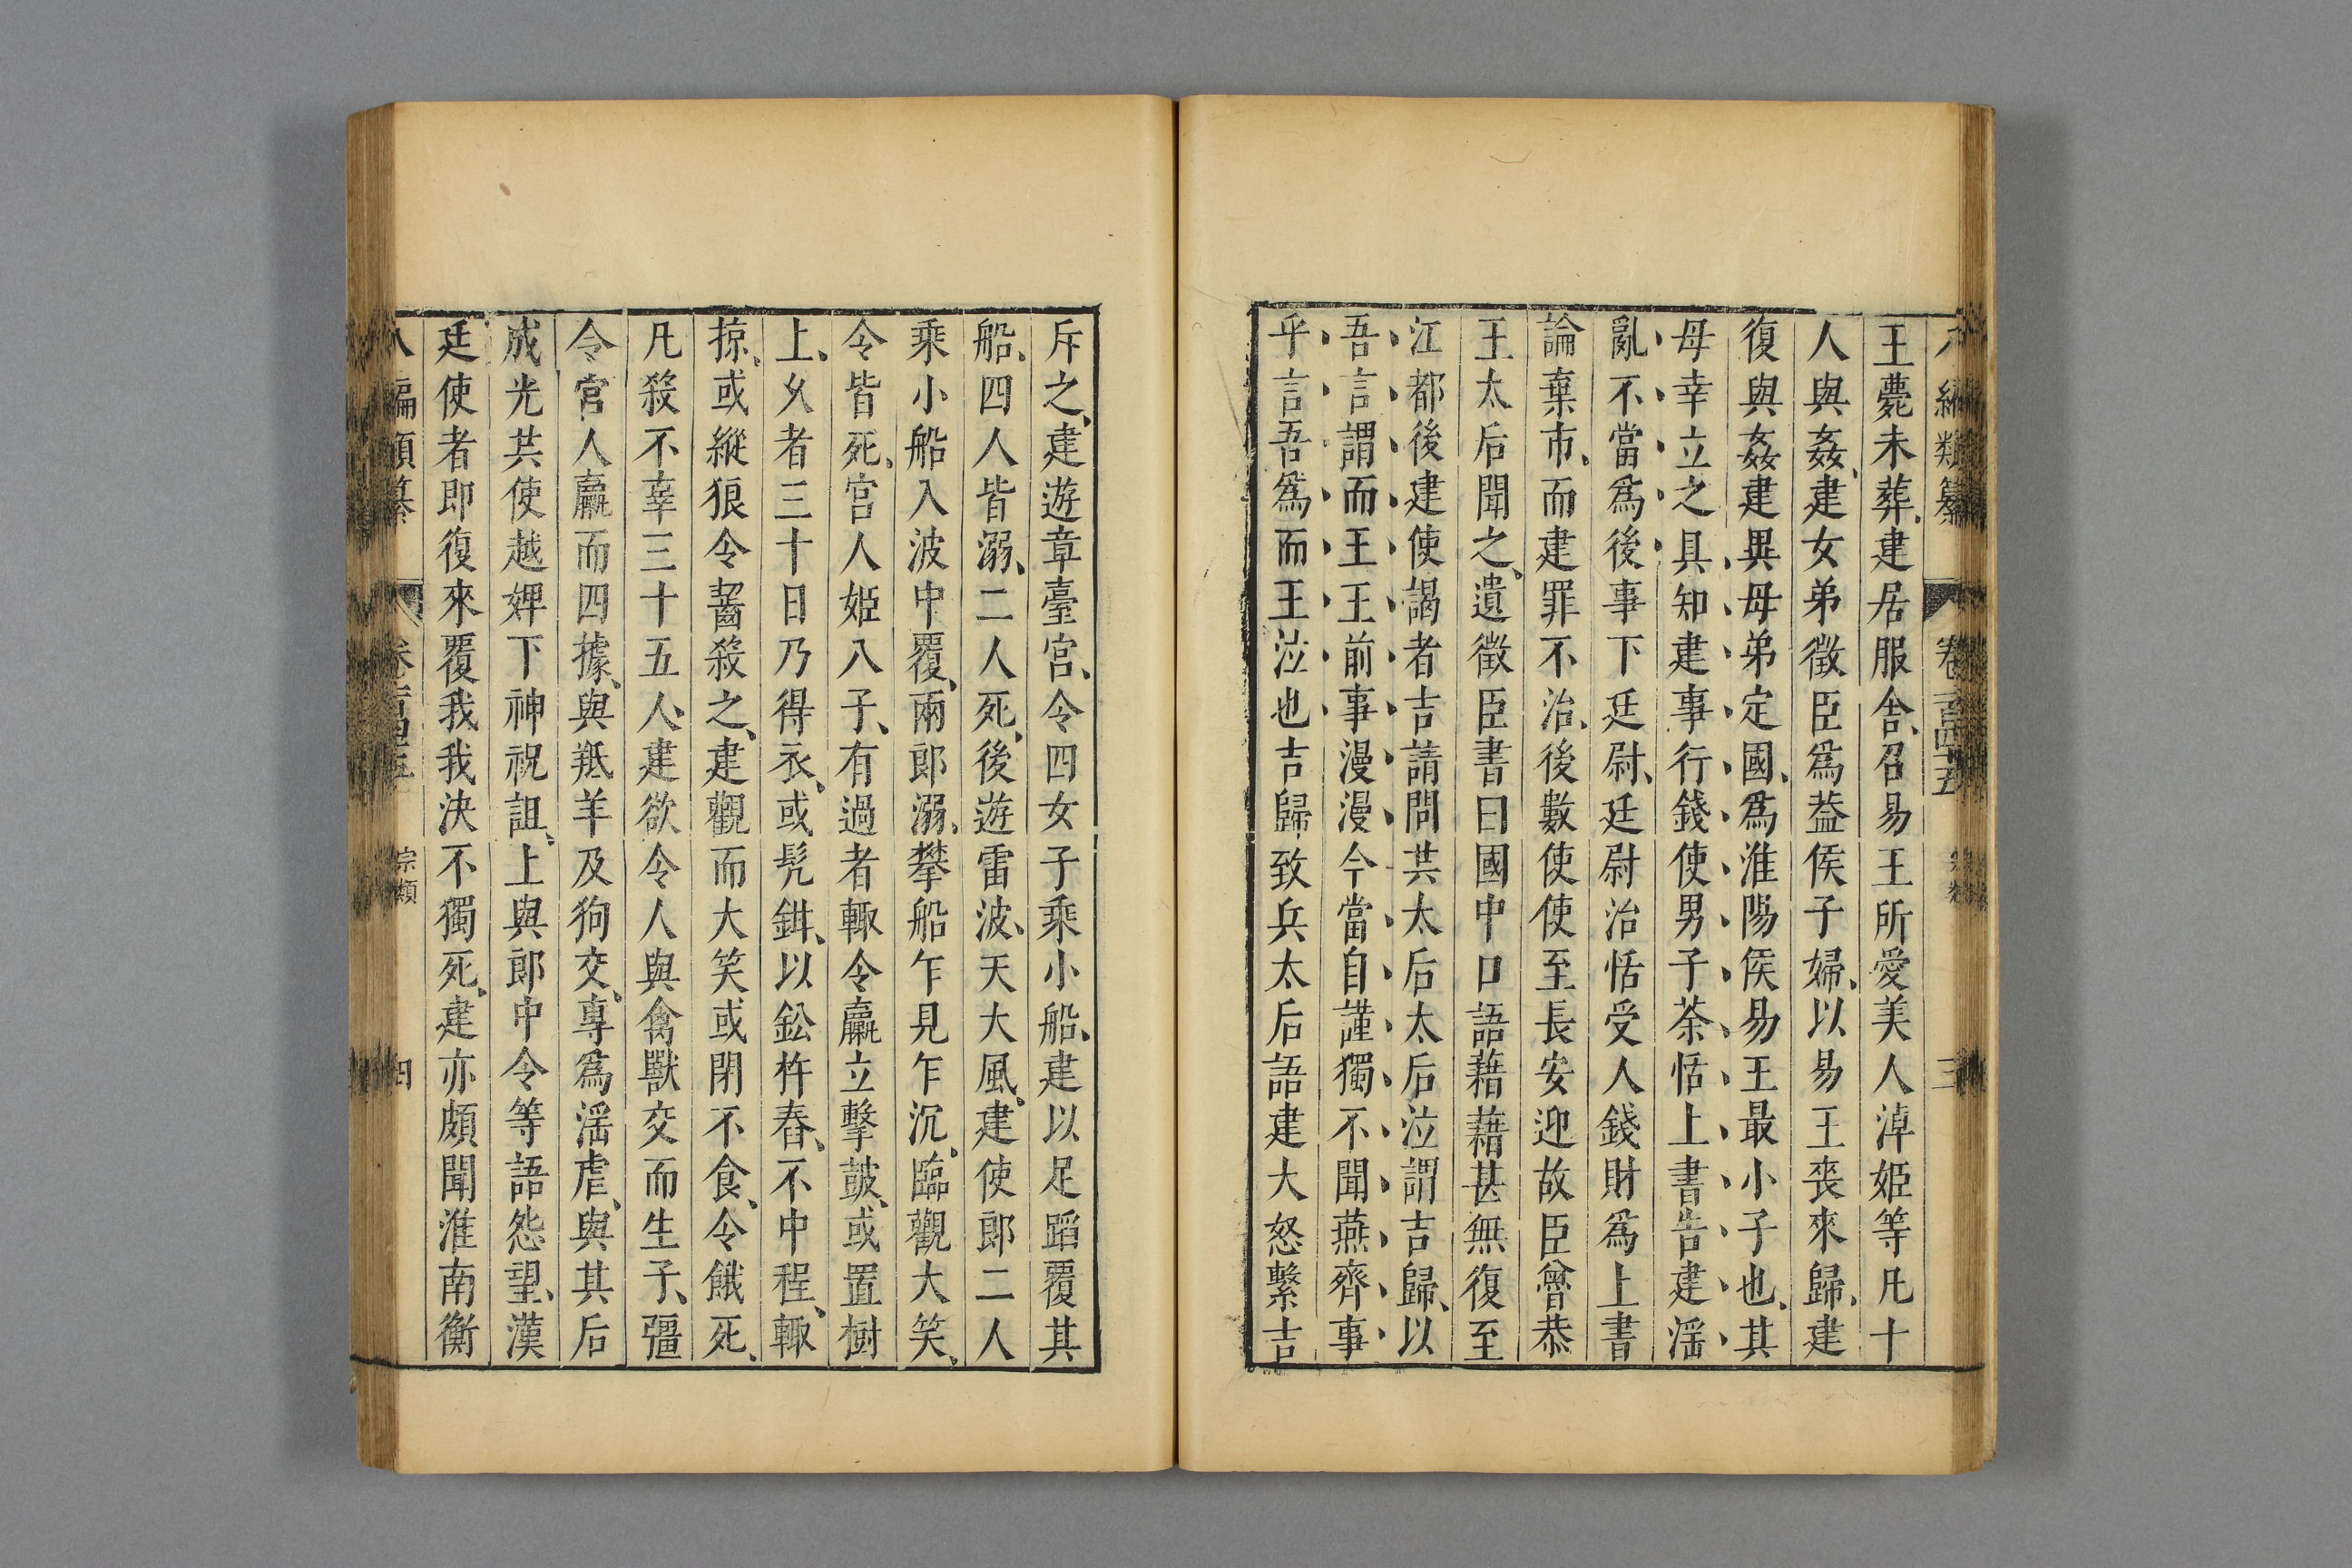 八編類纂 卷一百四十五 宗類 三
王薨未葬、建居服舍、召易王所愛美人淖姬等凡十
人與姦、建女弟徵臣爲葢侯子婦、以易王喪來歸、建
復與姦建異母弟定國、爲淮陽侯易王最小子也、其
母幸立之具知建事行錢使男子荼恬上書告建淫
亂不當爲後事下廷尉、廷尉治恬受人錢財爲上書
論棄市、而建罪不治、後數使使至長安迎故臣曾恭
王太后聞之、遺徵臣書曰國中口語藉藉甚無復至
江都後建使謁者吉請問共太后太后泣謂吉歸、以
吾言謂而王王前事漫漫今當自謹獨不聞燕齊事
乎言吾爲而王泣也吉歸致兵太后語建大怒繫吉
斥之、建遊章臺宮、令四女子乘小船、建以足蹈覆其
船、四人皆溺、二人死、後遊雷波、天大風、建使郎二人
乘小船入波中覆、兩郎溺、攀船乍見乍沉、臨觀大笑、
令皆死、宮人姬八子、有過者輙令羸立擊鼓、或置樹
上、久者三十日乃得衣、或髠鉗、以鈆杵舂、不中程、輙
掠、或縱狼令齧殺之、建觀而大笑或閉不食、令餓死、
凡殺不辜三十五人、建欲令人與禽獸交而生子、彊
令宮人羸而四據、與羝羊及狗交、專爲淫虐、與其后
成光共使越婢下神祝詛、上與郎中令等語怨望、漢
廷使者即復來覆我我決不獨死、建亦頗聞淮南衡
八編類纂 卷一百四十五 宗類 四